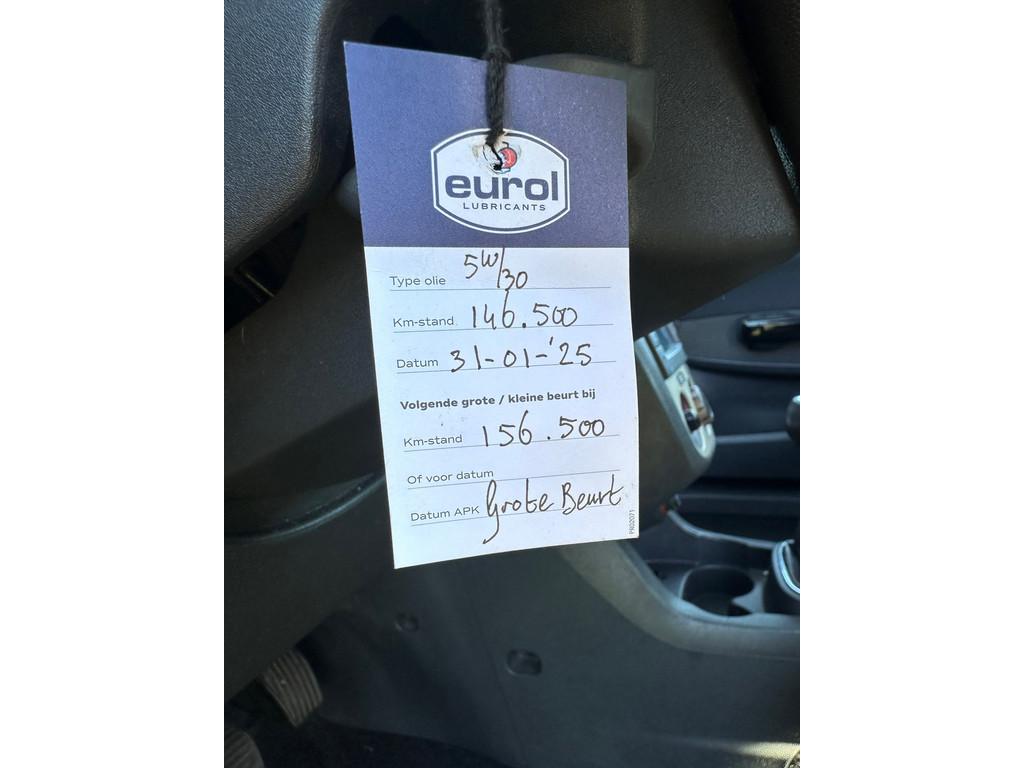 eurol
LUBRICANTS
Type olie 5W/30
Km-stand 146.500
Datum 31-01-'25
Volgende grote / kleine beurt bij
Km-stand 156.500
Of voor datum
Datum APK Grote Beurt
PR02071